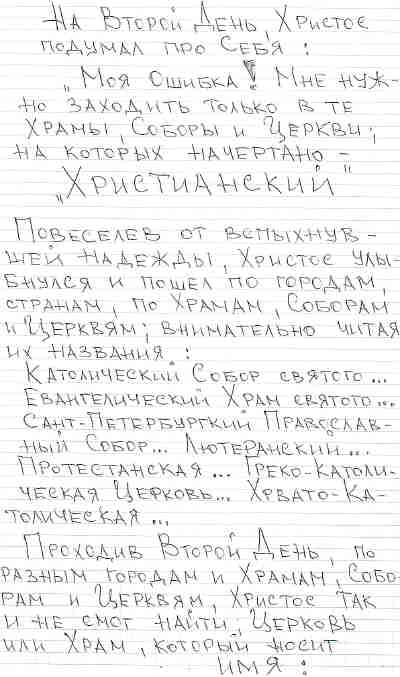 На Второй День, Христос
подумал про Себя :
„Моя Ошибка! Мне нуж-
но заходить только в те
Храмы, Соборы и Церкви;
на которых начертано –
„Христианский"
Повеселев от вспыхнув-
шей Надежды, Христос улы-
бнулся и пошел по городам,
странам, по Храмам, Соборам
и Церквям; внимательно читая
их названия :
Католический Собор святого...
Евангелический Храм святого...
Сант-Петербургкий Православ-
ный Собор... Лютеранский...
Протестанская... Греко-Католи-
ческая Церковь... Хрвато-Ка-
толическая...
Проходив Второй День, по
разным городам и Храмам, Собо-
рам и Церквям, Христос так
и не смог найти; Церковь
или Храм, который носит
имя :